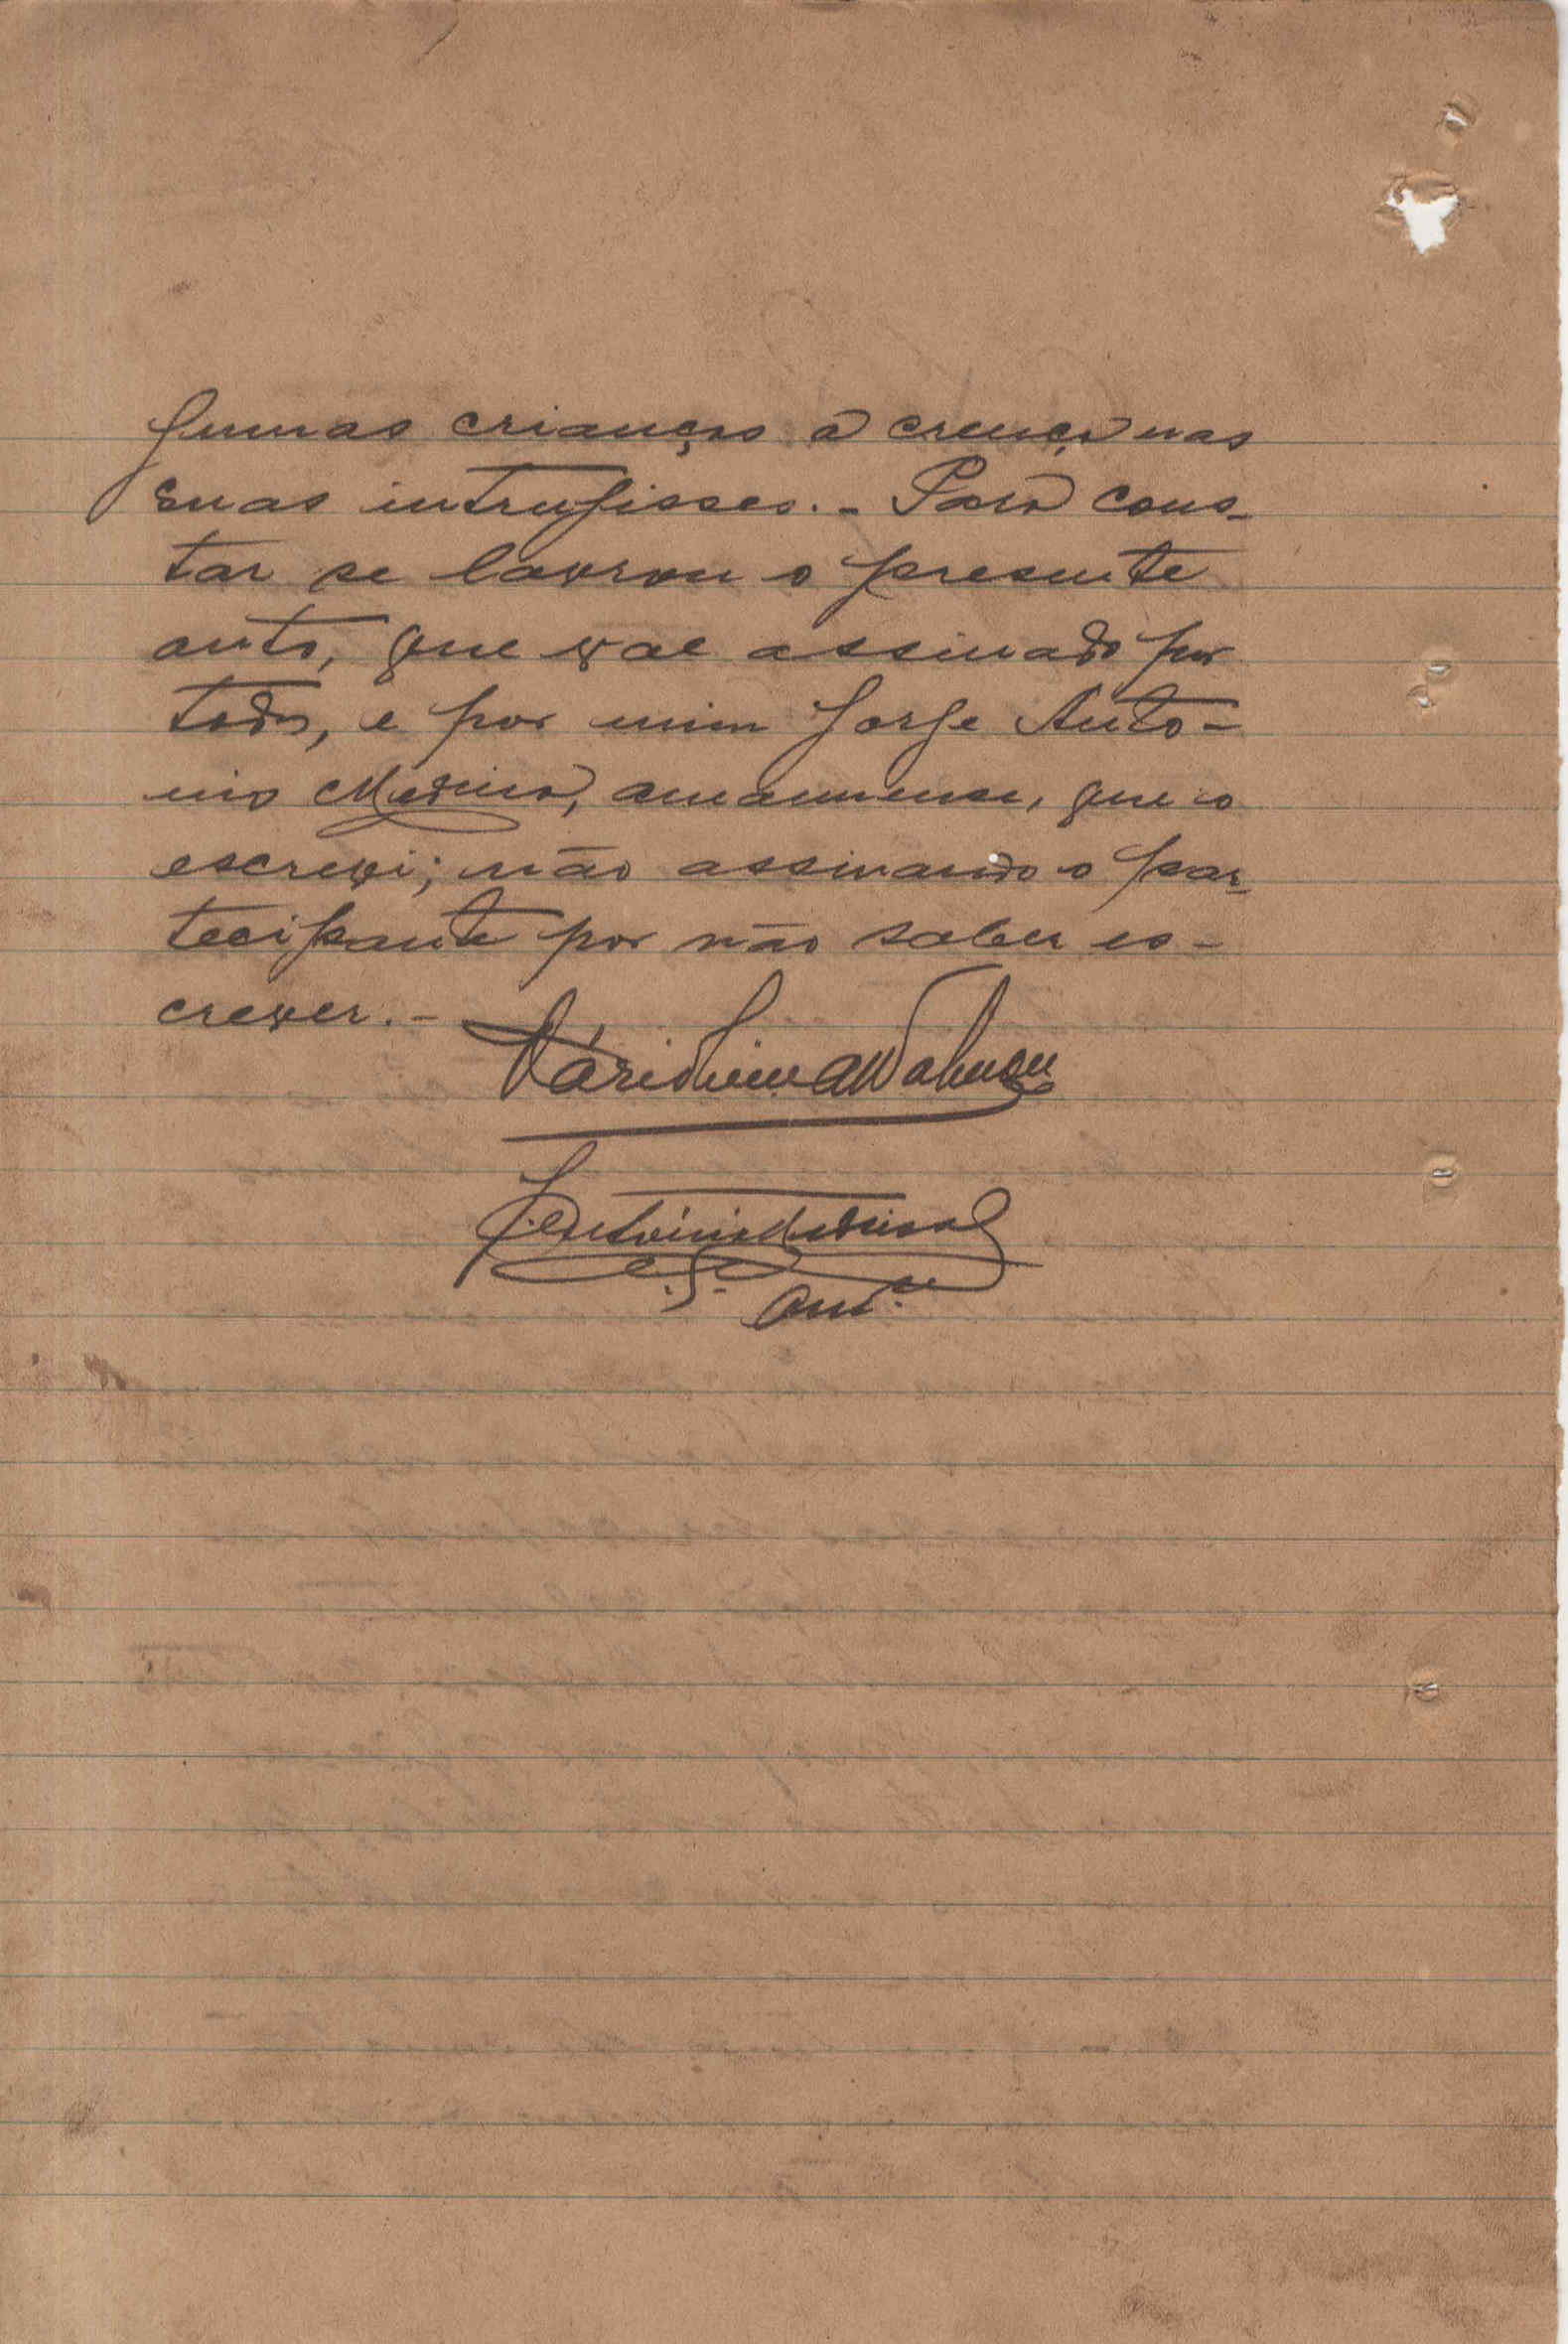 gumas crianças a crença nas
suas intrugisses. - Para cons-
tar se lavrou o presente
auto, que vae assinado por
todos, e por mim Jorge Anto-
nio Medina, amanuense, que o
escrevi; não assinando o par-
tecipante por não saber es-
crever. -
J. Antonio Medina